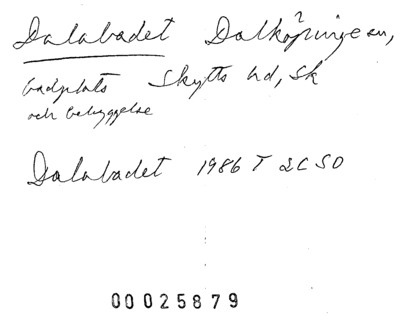 Dalabadet Dalköpinge sn,
badplats Skytts hd, Sk
och bebyggelse
Dalabadet 1986 T 2C SO
00025879